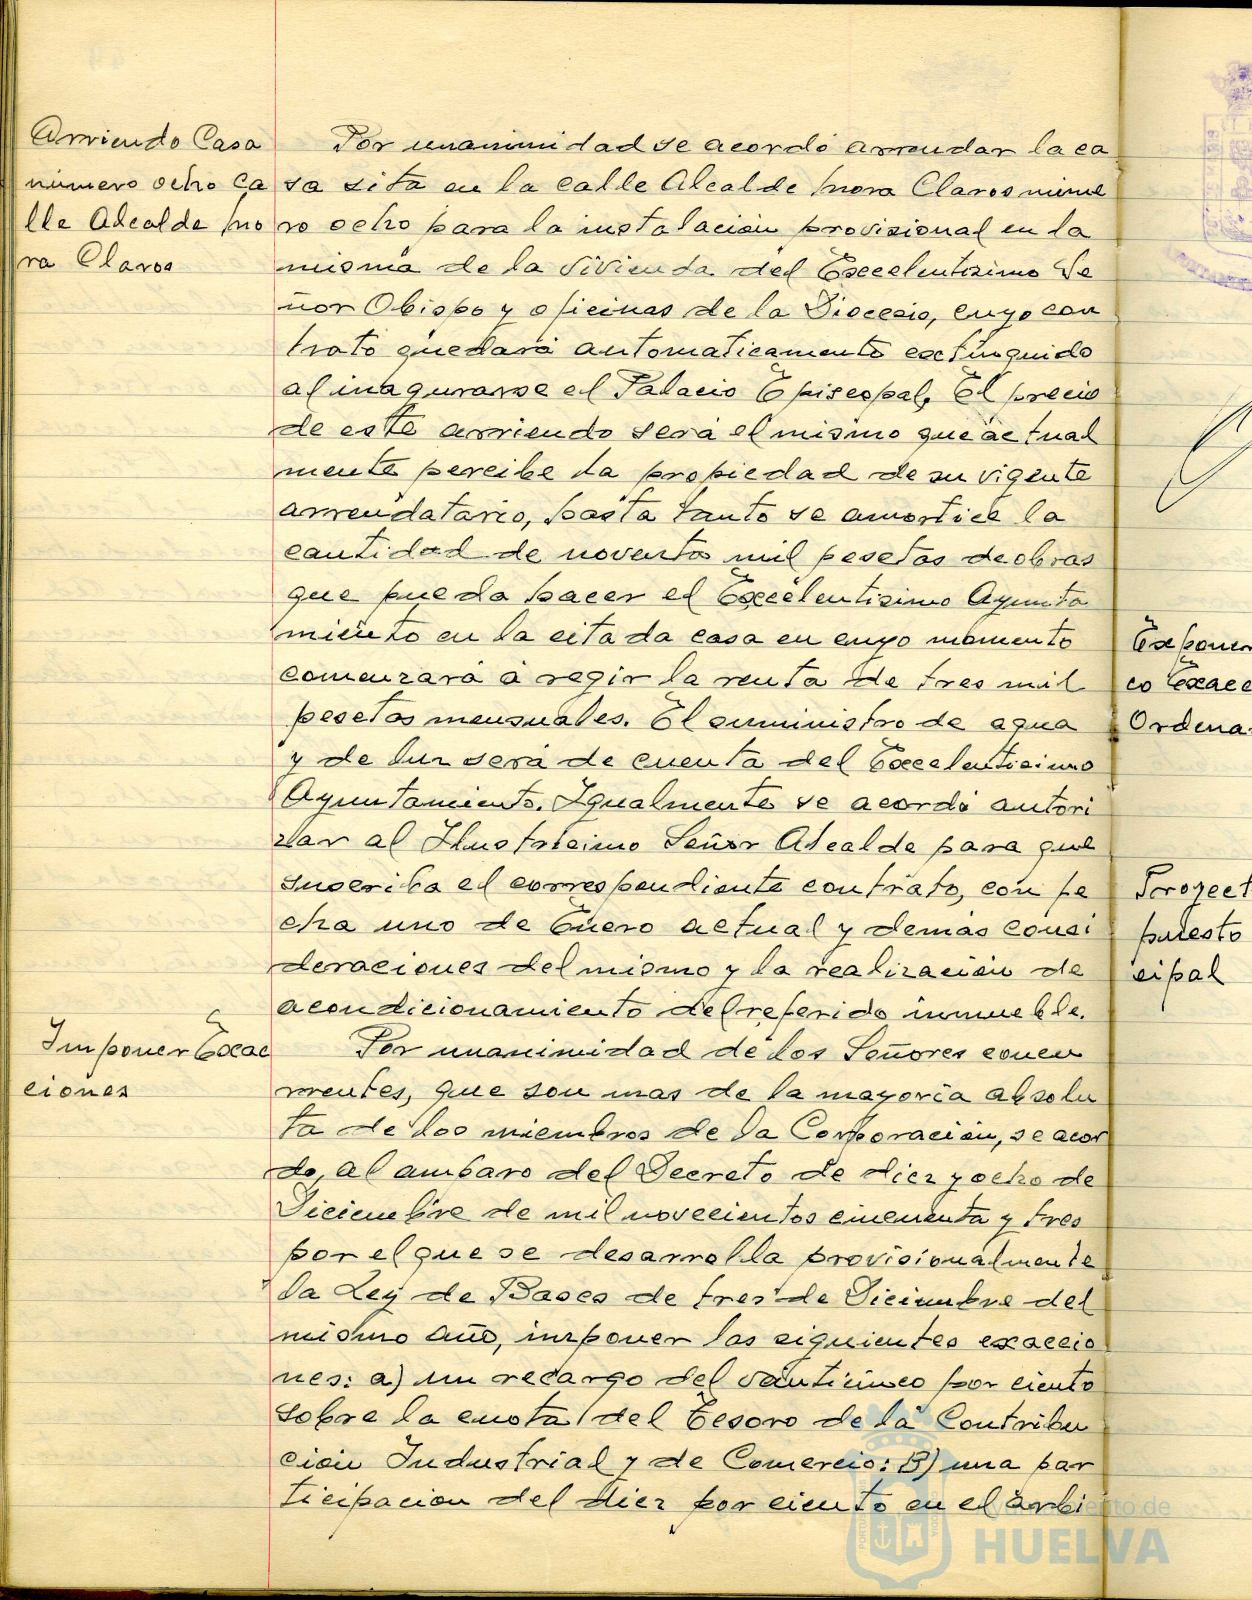 Arriendo Casa
número ocho Ca
lle Alcalde Mo
ra Claros
Por unanimidad se acordó arrendar la ca
sa sita en la calle Alcalde Mora Claros núme
ro ocho para la instalación provisional en la
misma de la vivienda del Excelentisimo Se
ñor Obispo y oficinas de la Diocesis, cuyo con
trato quedará automaticamente extinguido
al inagurarse el Palacio Episcopal, El precio
de este arriendo será el mismo que actual
mente percibe la propiedad de su vigente
arrendatario, hasta tanto se amortice la
cantidad de noventa mil pesetas de obras
que pueda hacer el Excelentisimo Ayunta
miento en la citada casa en cuyo momento
comenzará á regir la renta de tres mil
pesetas mensuales. El suministro de agua
y de luz será de cuenta del Excelentisimo
Ayuntamiento. Igualmente se acordó autori
zar al Ilustrisimo Señor Alcalde para que
suscriba el correspondiente contrato, con fe
cha uno de Enero actual y demás consi
deraciones del mismo y la realización de
acondicionamiento del referido inmueble.
Imponer Exac
ciones
Por unanimidad de los Señores concu
rrentes, que son mas de la mayoria absolu
ta de los miembros de la Corporación, se acor
do, al amparo del Decreto de diez y ocho de
Diciembre de mil novecientos cincuenta y tres
por el que se desarrolla provisionalmente
la Ley de Bases de tres de Diciembre del
mismo año, imponer las siguientes exaccio
nes: a) un recargo del veinticinco por ciento
sobre la cuota del Tesoro de la Contribu
ción Industrial y de Comercio: B) una par
ticipacion del diez por ciento en el arbi
Exponer
co Exacc
Ordena
Proyect
puesto
cipal
Ayuntamiento de
HUELVA